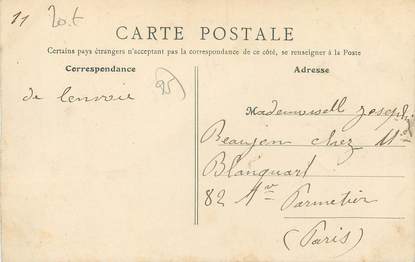 11 20.t
CARTE POSTALE
Certains pays étrangers n'acceptant pas la correspondance de ce côté, se renseigner à la Poste
Correspondance
Adresse
95
de lenvoie
Mademoisell Joseph
Beaujon chez Mme
Blanquart
82 Av Parmetier
(Paris)